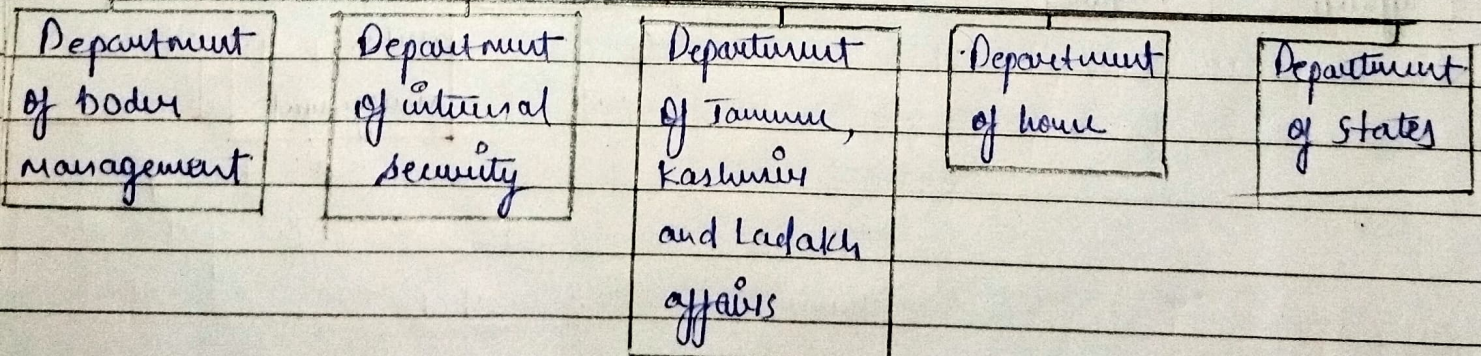 Department
of boder
management
Department
of internal
security
Department
of Jammu,
Kashmir
and Ladakh
affairs
Department
of home
Department
of states